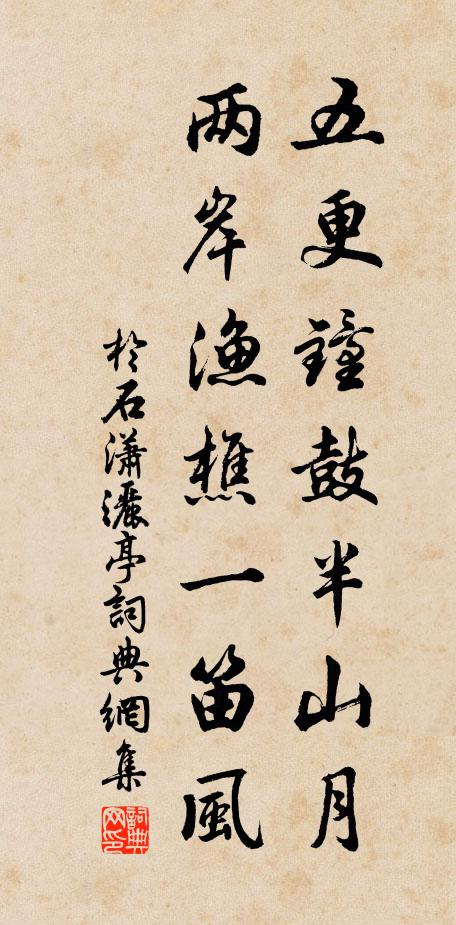 五更鐘鼓半山月
两岸漁樵一笛風
於石瀟灑亭詞典網集
詞典网印